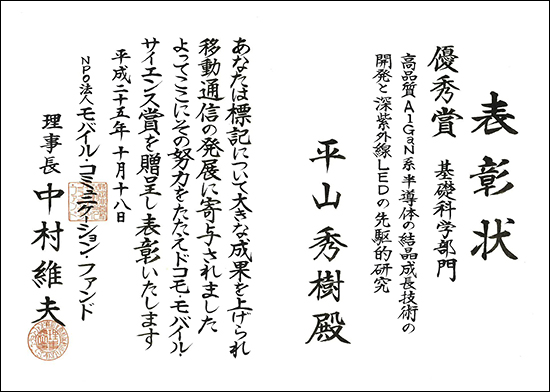 表彰状
優秀賞 基礎科学部門
高品質AlGaN系半導体の結晶成長技術の
開発と深紫外線LEDの先駆的研究
平山秀樹殿
あなたは標記について大きな成果を上げられ
移動通信の発展に寄与されました
よってここにその努力をたたえドコモ・モバイル・
サイエンス賞を贈呈し表彰いたします
平成二十五年十月十八日
NPO法人モバイル・コミュニケーション・ファンド
理事長 中村維夫